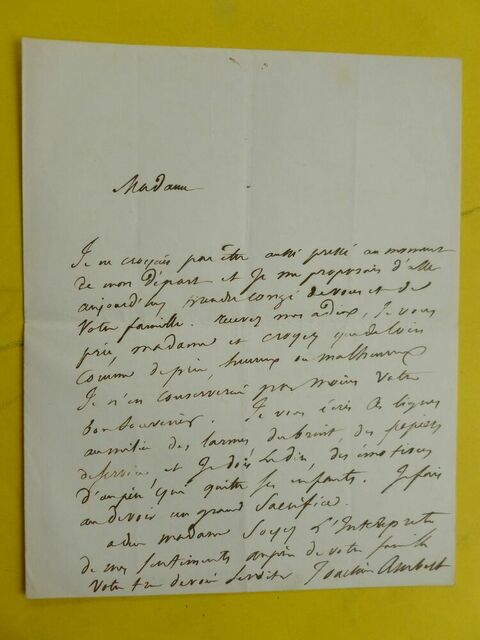 Madame
Je ne croyais pas être aussi pressé au moment
de mon Départ et Je me proposais d'aller
aujourd'huy prendre congé de vous et de
votre famille. recevez mes adieux, Je vous
prie, madame et croyez que de loin
comme de près, heureux ou malheureux
Je n'en conserverai pas moins votre
bon souvenir. Je vous écris ces lignes
au milieu des larmes du bruit, des papiers
de service et Je dois le dire, des émotions
d'un père qui quitte ses enfants. Je fais
au devoir un grand Sacrifice.
adieu madame Soyez L'Interprète
de mes sentiments auprès de votre famille
Votre très dévoué Serviteur Joachim Ambert